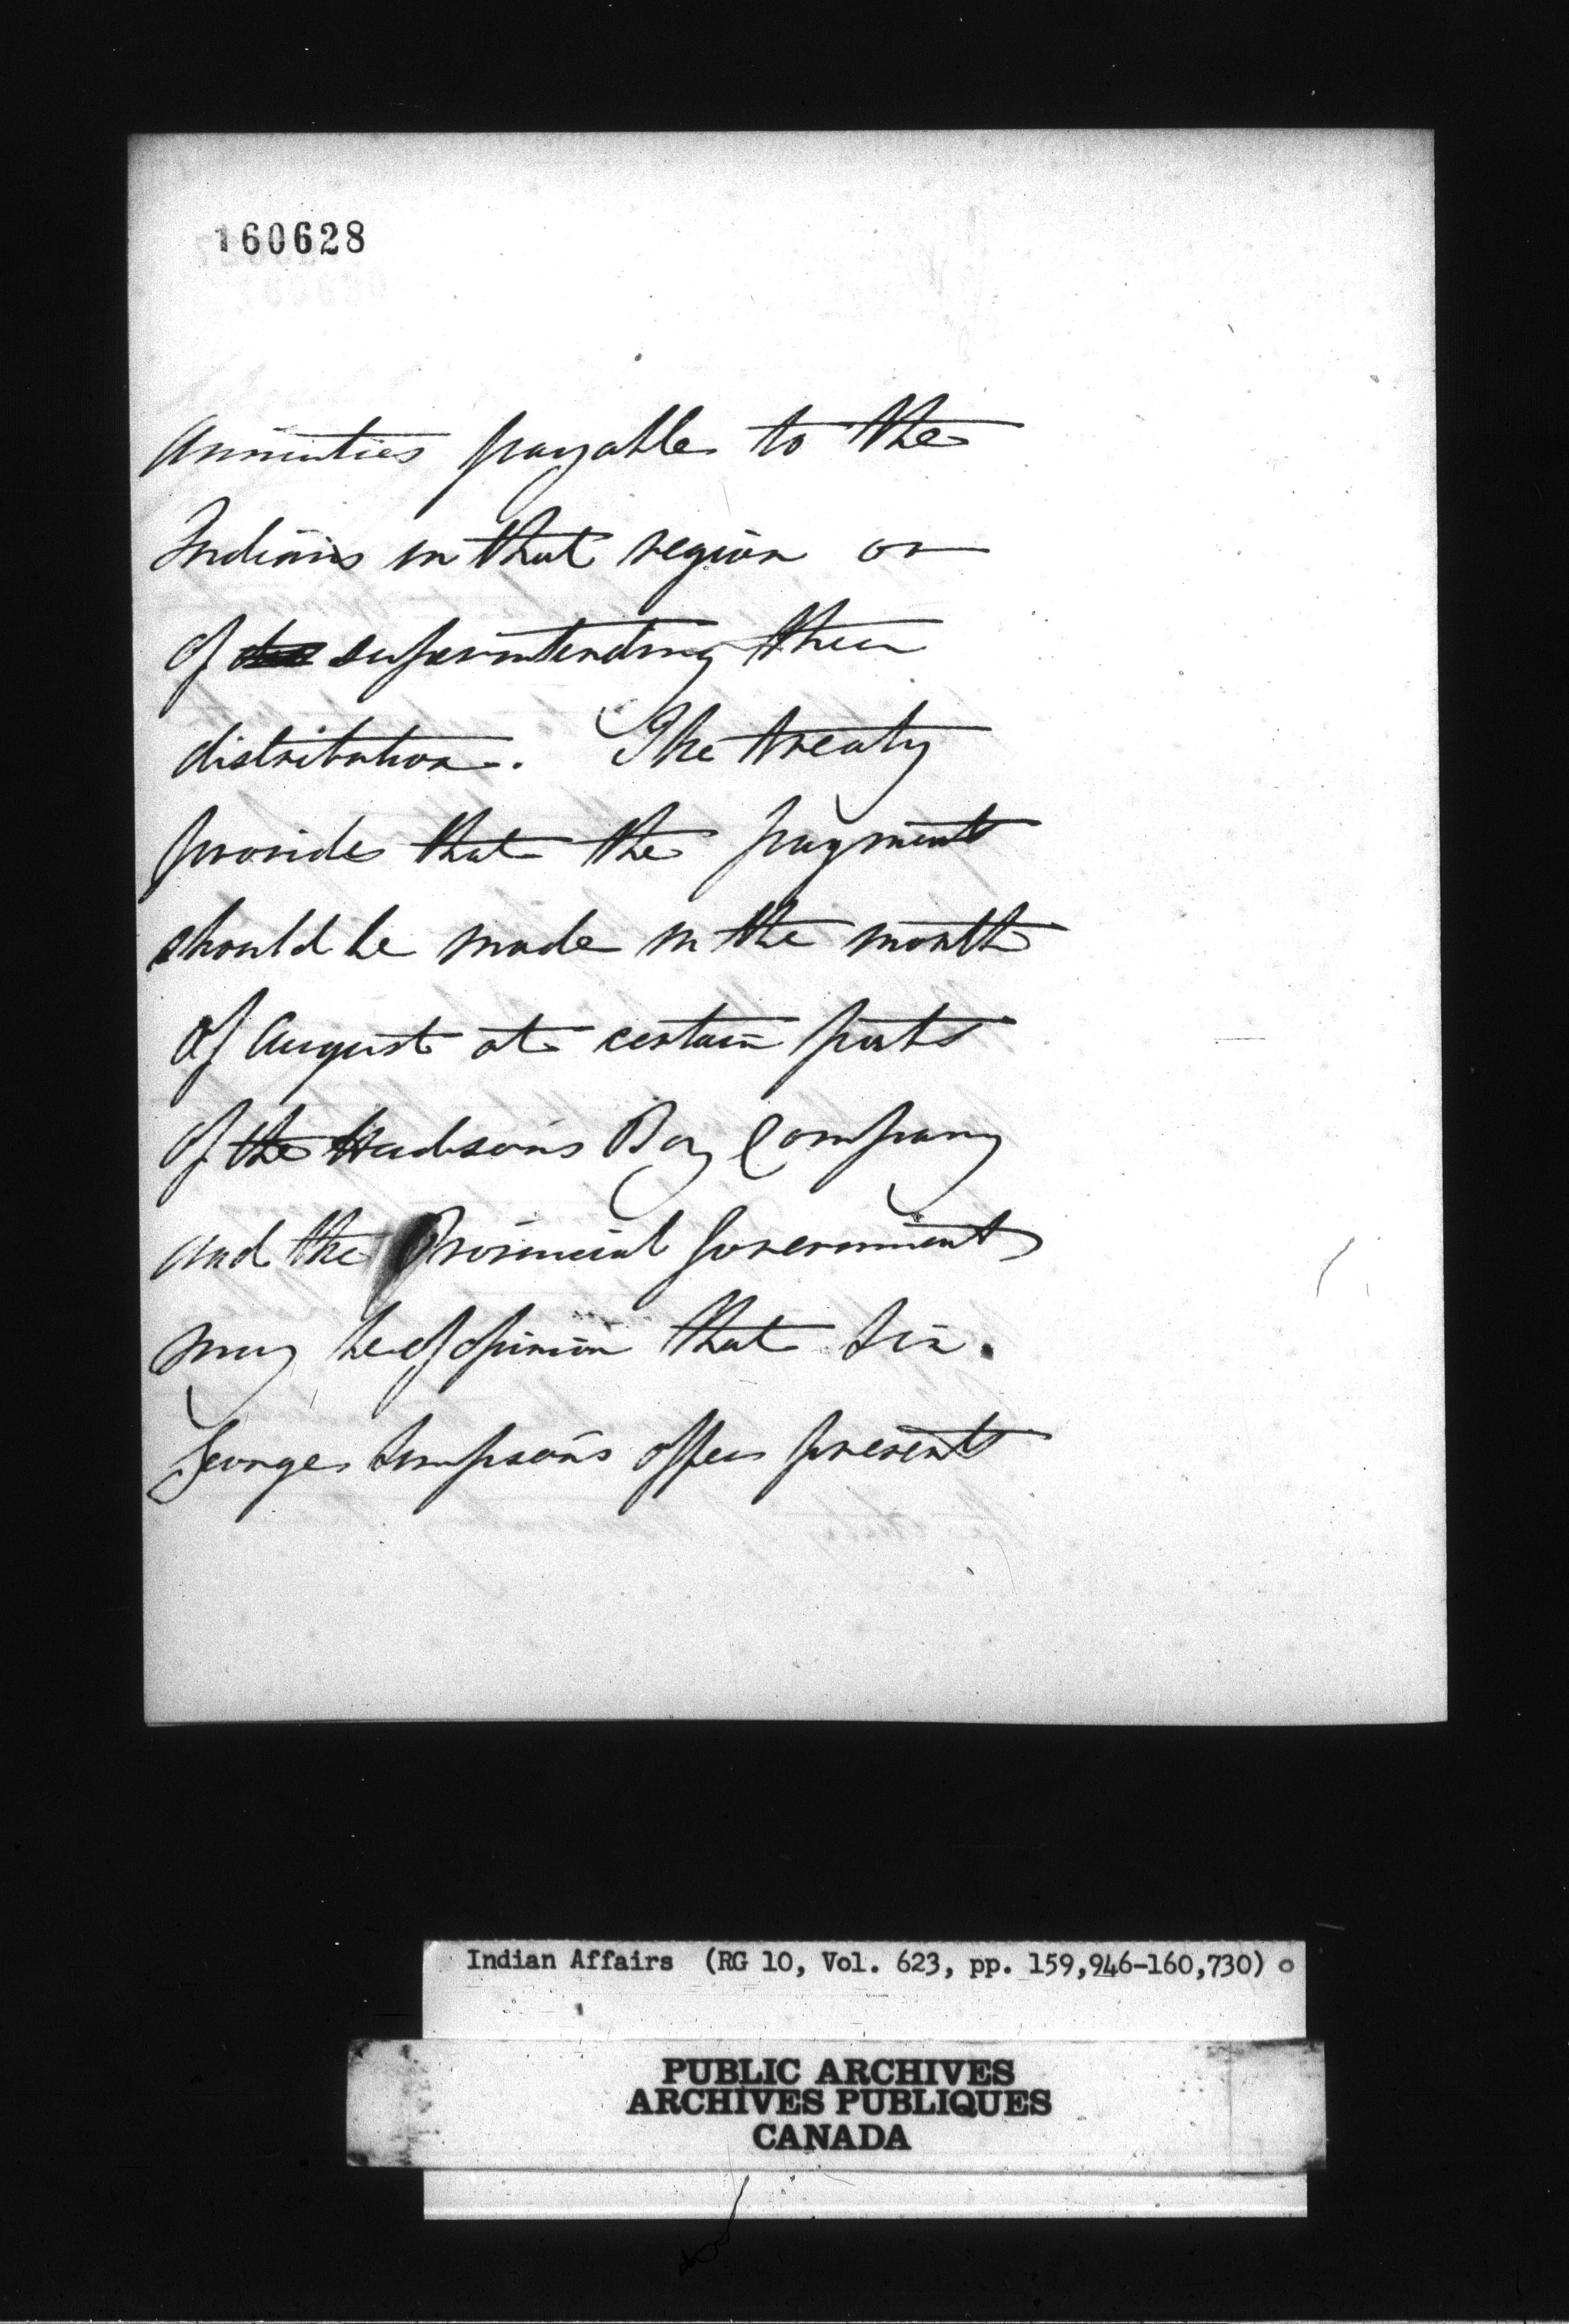 160628
annuities payable to the
Indians in that region or
of superintending their
distribution. The treaty
provides that the payments
should be made in the month
of August at certain posts
of the Hudson's Bay Company
and the Provincial Government
may be of opinion that Sir
George Simpson's offer presents
Indian Affairs (RG 10, Vol. 623, pp. 159,946-160,730)
PUBLIC ARCHIVES
ARCHIVES PUBLIQUES
CANADA